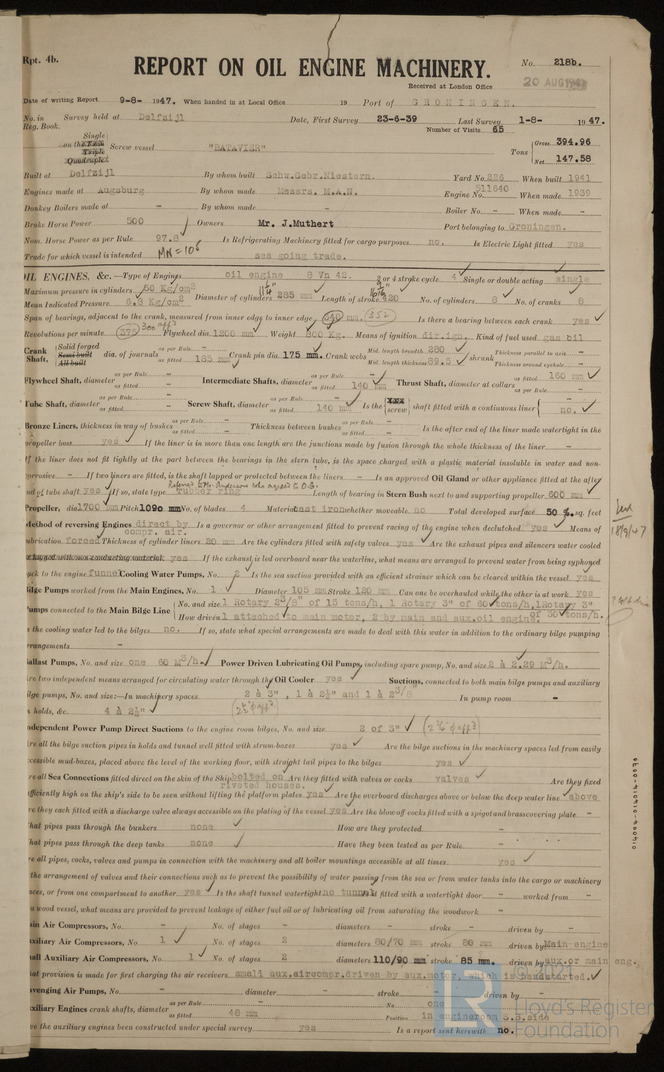 Rpt. 4b.
No. 218b.
REPORT ON OIL ENGINE MACHINERY.
20 AUG
Received at London Office
Date of writing Report 9-8- 1947. When handed in at Local Office 19 Port of GRONINGEN.
No. in Reg. Book. Survey held at Delfzijl Date, First Survey 23-6-39 Last Survey 1-8- 1947.
Number of Visits 65
on the Single Twin Triple Quadruple Screw vessel "BATAVIER" Tons Gross 394.96 Net 147.58
Built at Delfzijl By whom built Schw.Gebr.Niestern. Yard No. 226 When built 1941
Engines made at Augsburg By whom made Messrs. M.A.N. Engine No. 511640 When made 1939
Donkey Boilers made at - By whom made - Boiler No. - When made -
Brake Horse Power 500 Owners Mr. J.Muthert Port belonging to Groningen.
Nom. Horse Power as per Rule 97.8 Is Refrigerating Machinery fitted for cargo purposes no. Is Electric Light fitted yes
Trade for which vessel is intended MN=106 sea going trade.
OIL ENGINES, &c.—Type of Engines oil engine 8 Vn 42. 2 or 4 stroke cycle 4 Single or double acting single
Maximum pressure in cylinders 50 Kg/cm2 Diameter of cylinders 285 mm Length of stroke 420 No. of cylinders 8 No. of cranks 8
Mean Indicated Pressure 6.3 Kg/cm2
Span of bearings, adjacent to the crank, measured from inner edge to inner edge mm. (352) Is there a bearing between each crank yes
Revolutions per minute 375 Flywheel dia. 1200 mm Weight 800 Kg. Means of ignition dir.ign. Kind of fuel used gas oil
Crank Shaft, Solid forged Semi built All built dia. of journals as per Rule - as fitted 185 mm Crank pin dia. 175 mm. Crank webs Mid. length breadth 280 Mid. length thickness 89.5 shrunk Thickness parallel to axis - Thickness around eyehole -
Flywheel Shaft, diameter as per Rule - as fitted - Intermediate Shafts, diameter as per Rule as fitted 140 mm Thrust Shaft, diameter at collars as fitted 160 mm as per Rule -
Tube Shaft, diameter as per Rule - as fitted - Screw Shaft, diameter as per Rule as fitted 140 mm Is the screw shaft fitted with a continuous liner no.
Bronze Liners, thickness in way of bushes as per Rule - as fitted - Thickness between bushes as per Rule as fitted - Is the after end of the liner made watertight in the
propeller boss yes If the liner is in more than one length are the junctions made by fusion through the whole thickness of the liner -
If the liner does not fit tightly at the part between the bearings in the stern tube, is the space charged with a plastic material insoluble in water and non-
corrosive - If two liners are fitted, is the shaft lapped or protected between the liners - Is an approved Oil Gland or other appliance fitted at the after
end of tube shaft yes If so, state type rubber ring Length of bearing in Stern Bush next to and supporting propeller 600 mm
Propeller, dia 1700 mm Pitch 1090 mm No. of blades 4 Material cast iron whether moveable no Total developed surface 50 %. sq. feet
Method of reversing Engines direct by compr. air. Is a governor or other arrangement fitted to prevent racing of the engine when declutched yes Means of
lubrication forced Thickness of cylinder liners 20 mm Are the cylinders fitted with safety valves yes Are the exhaust pipes and silencers water cooled
or lagged with non-conducting material yes If the exhaust is led overboard near the waterline, what means are arranged to prevent water from being syphoned
back to the engine funnel Cooling Water Pumps, No. 2 Is the sea suction provided with an efficient strainer which can be cleared within the vessel yes
Bilge Pumps worked from the Main Engines, No. 1 Diameter 105 mm Stroke 120 mm Can one be overhauled while the other is at work yes
Pumps connected to the Main Bilge Line No. and size 1 Rotary 2 3/8" of 15 tons/h, 1 Rotary 3" of 60 tons/h, 1Rotary 3" of 30 tons/h.
How driven 1 attached to main motor, 2 by main and aux.oil engine.
Is the cooling water led to the bilges no. If so, state what special arrangements are made to deal with this water in addition to the ordinary bilge pumping
arrangements -
Ballast Pumps, No. and size one 60 M3/h. Power Driven Lubricating Oil Pumps, including spare pump, No. and size 2 à 2.29 M3/h.
Are two independent means arranged for circulating water through the Oil Cooler yes Suctions, connected to both main bilge pumps and auxiliary
bilge pumps, No. and size:—In machinery spaces 2 à 3", 1 à 2½" and 1 à 2 3/8" In pump room -
In holds, &c. 4 à 2½"
Independent Power Pump Direct Suctions to the engine room bilges, No. and size 2 of 3"
Are all the bilge suction pipes in holds and tunnel well fitted with strum-boxes yes Are the bilge suctions in the machinery spaces led from easily
accessible mud-boxes, placed above the level of the working floor, with straight tail pipes to the bilges yes
Are all Sea Connections fitted direct on the skin of the Ship bolted on riveted houses. Are they fitted with valves or cocks valves Are they fixed
sufficiently high on the ship's side to be seen without lifting the platform plates yes Are the overboard discharges above or below the deep water line above
Are they each fitted with a discharge valve always accessible on the plating of the vessel yes Are the blow off cocks fitted with a spigot and brass covering plate -
What pipes pass through the bunkers none How are they protected -
What pipes pass through the deep tanks none Have they been tested as per Rule -
Are all pipes, cocks, valves and pumps in connection with the machinery and all boiler mountings accessible at all times yes
Is the arrangement of valves and their connections such as to prevent the possibility of water passing from the sea or from water tanks into the cargo or machinery
spaces, or from one compartment to another yes Is the shaft tunnel watertight no tunnel Is it fitted with a watertight door - worked from -
If a wood vessel, what means are provided to prevent leakage of either fuel oil or of lubricating oil from saturating the woodwork -
Main Air Compressors, No. - No. of stages - diameters - stroke - driven by -
Auxiliary Air Compressors, No. 1 No. of stages 2 diameters 60/70 mm stroke 80 mm driven by Main engine
Small Auxiliary Air Compressors, No. 1 No. of stages 2 diameters 110/90 mm stroke 85 mm. driven by aux.or main eng.
What provision is made for first charging the air receivers small aux.aircompr.driven by aux.motor, which is handstarted.
Scavenging Air Pumps, No. - diameter - stroke - driven by -
Auxiliary Engines crank shafts, diameter as per Rule as fitted 48 mm No. one Position in engineroom S.B.side
Have the auxiliary engines been constructed under special survey yes Is a report sent herewith no.
© 2021
Lloyd's Register
Foundation